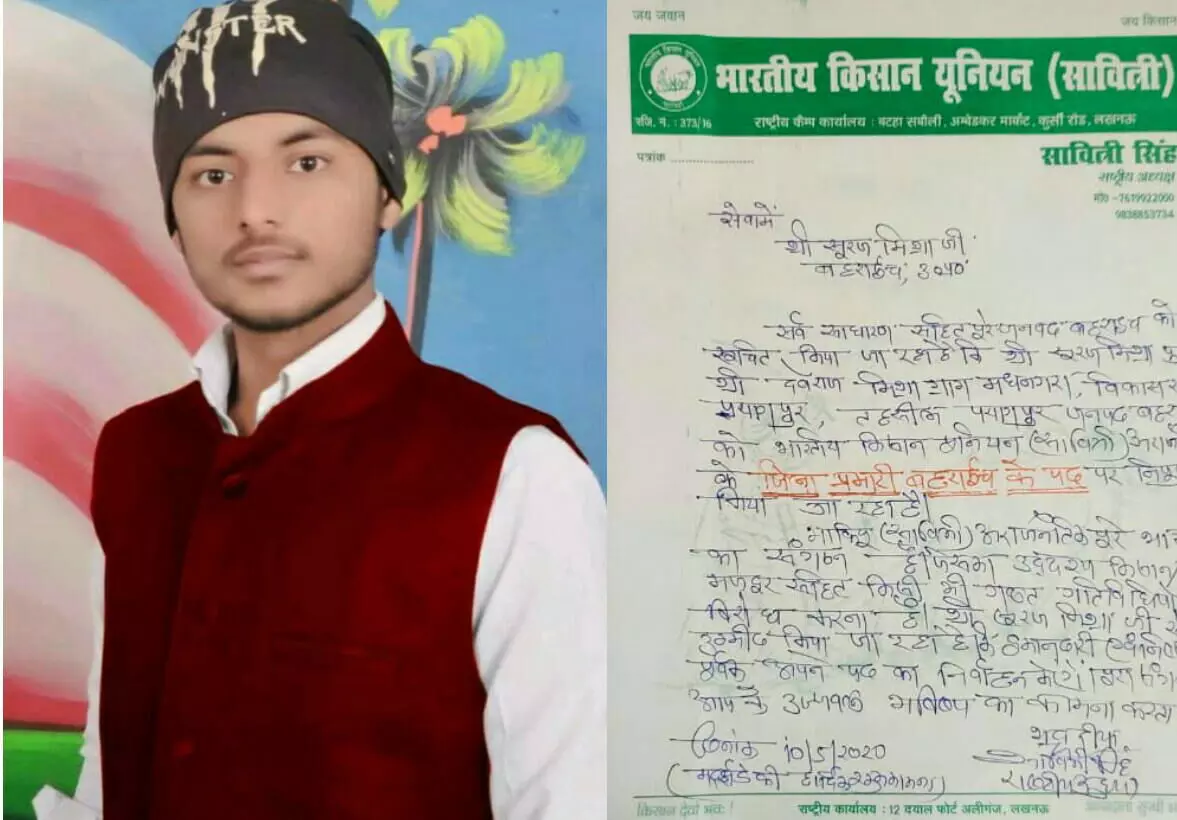 जय जवान
जय किसान
भारतीय किसान यूनियन (सावित्री)
रजि. न. : 373/16
राष्ट्रीय कैम्प कार्यालय : बटहा सबौली, अम्बेडकर मार्केट, कुर्सी रोड, लखनऊ
पत्रांक ....................
सावित्री सिंह
राष्ट्रीय अध्यक्ष
मो० -7619922000
9838853734
सेवामें
श्री सूरज मिश्रा जी
बहराईच, उ०प्र०
सर्व साधारण सहित पूरे जनपद बहराइच को
सूचित किया जा रहा है कि श्री सूरज मिश्रा
श्री मिश्रा ग्राम विकास
पयागपुर, तहसील पयागपुर जनपद
को भारतीय किसान यूनियन (सावित्री)
के जिला प्रभारी बहराईच के पद पर
किया जा रहा है।
भाकियू (सावित्री) अराजनैतिक पूरे
का संगठन है जिसका उद्देश्य किसान
मजदूर सहित किसी भी गलत
विरोध करना है। श्री सूरज मिश्रा जी
उम्मीद किया जा रहा है कि ईमानदारी
पूर्वक अपने पद का निर्वाहन करेंगे।
आप के उज्जवल भविष्य का कामना करता
दिनांक 10/5/2020
राष्ट्रीय कार्यालय : 12 दयाल फोर्ट अलीगंज, लखनऊ